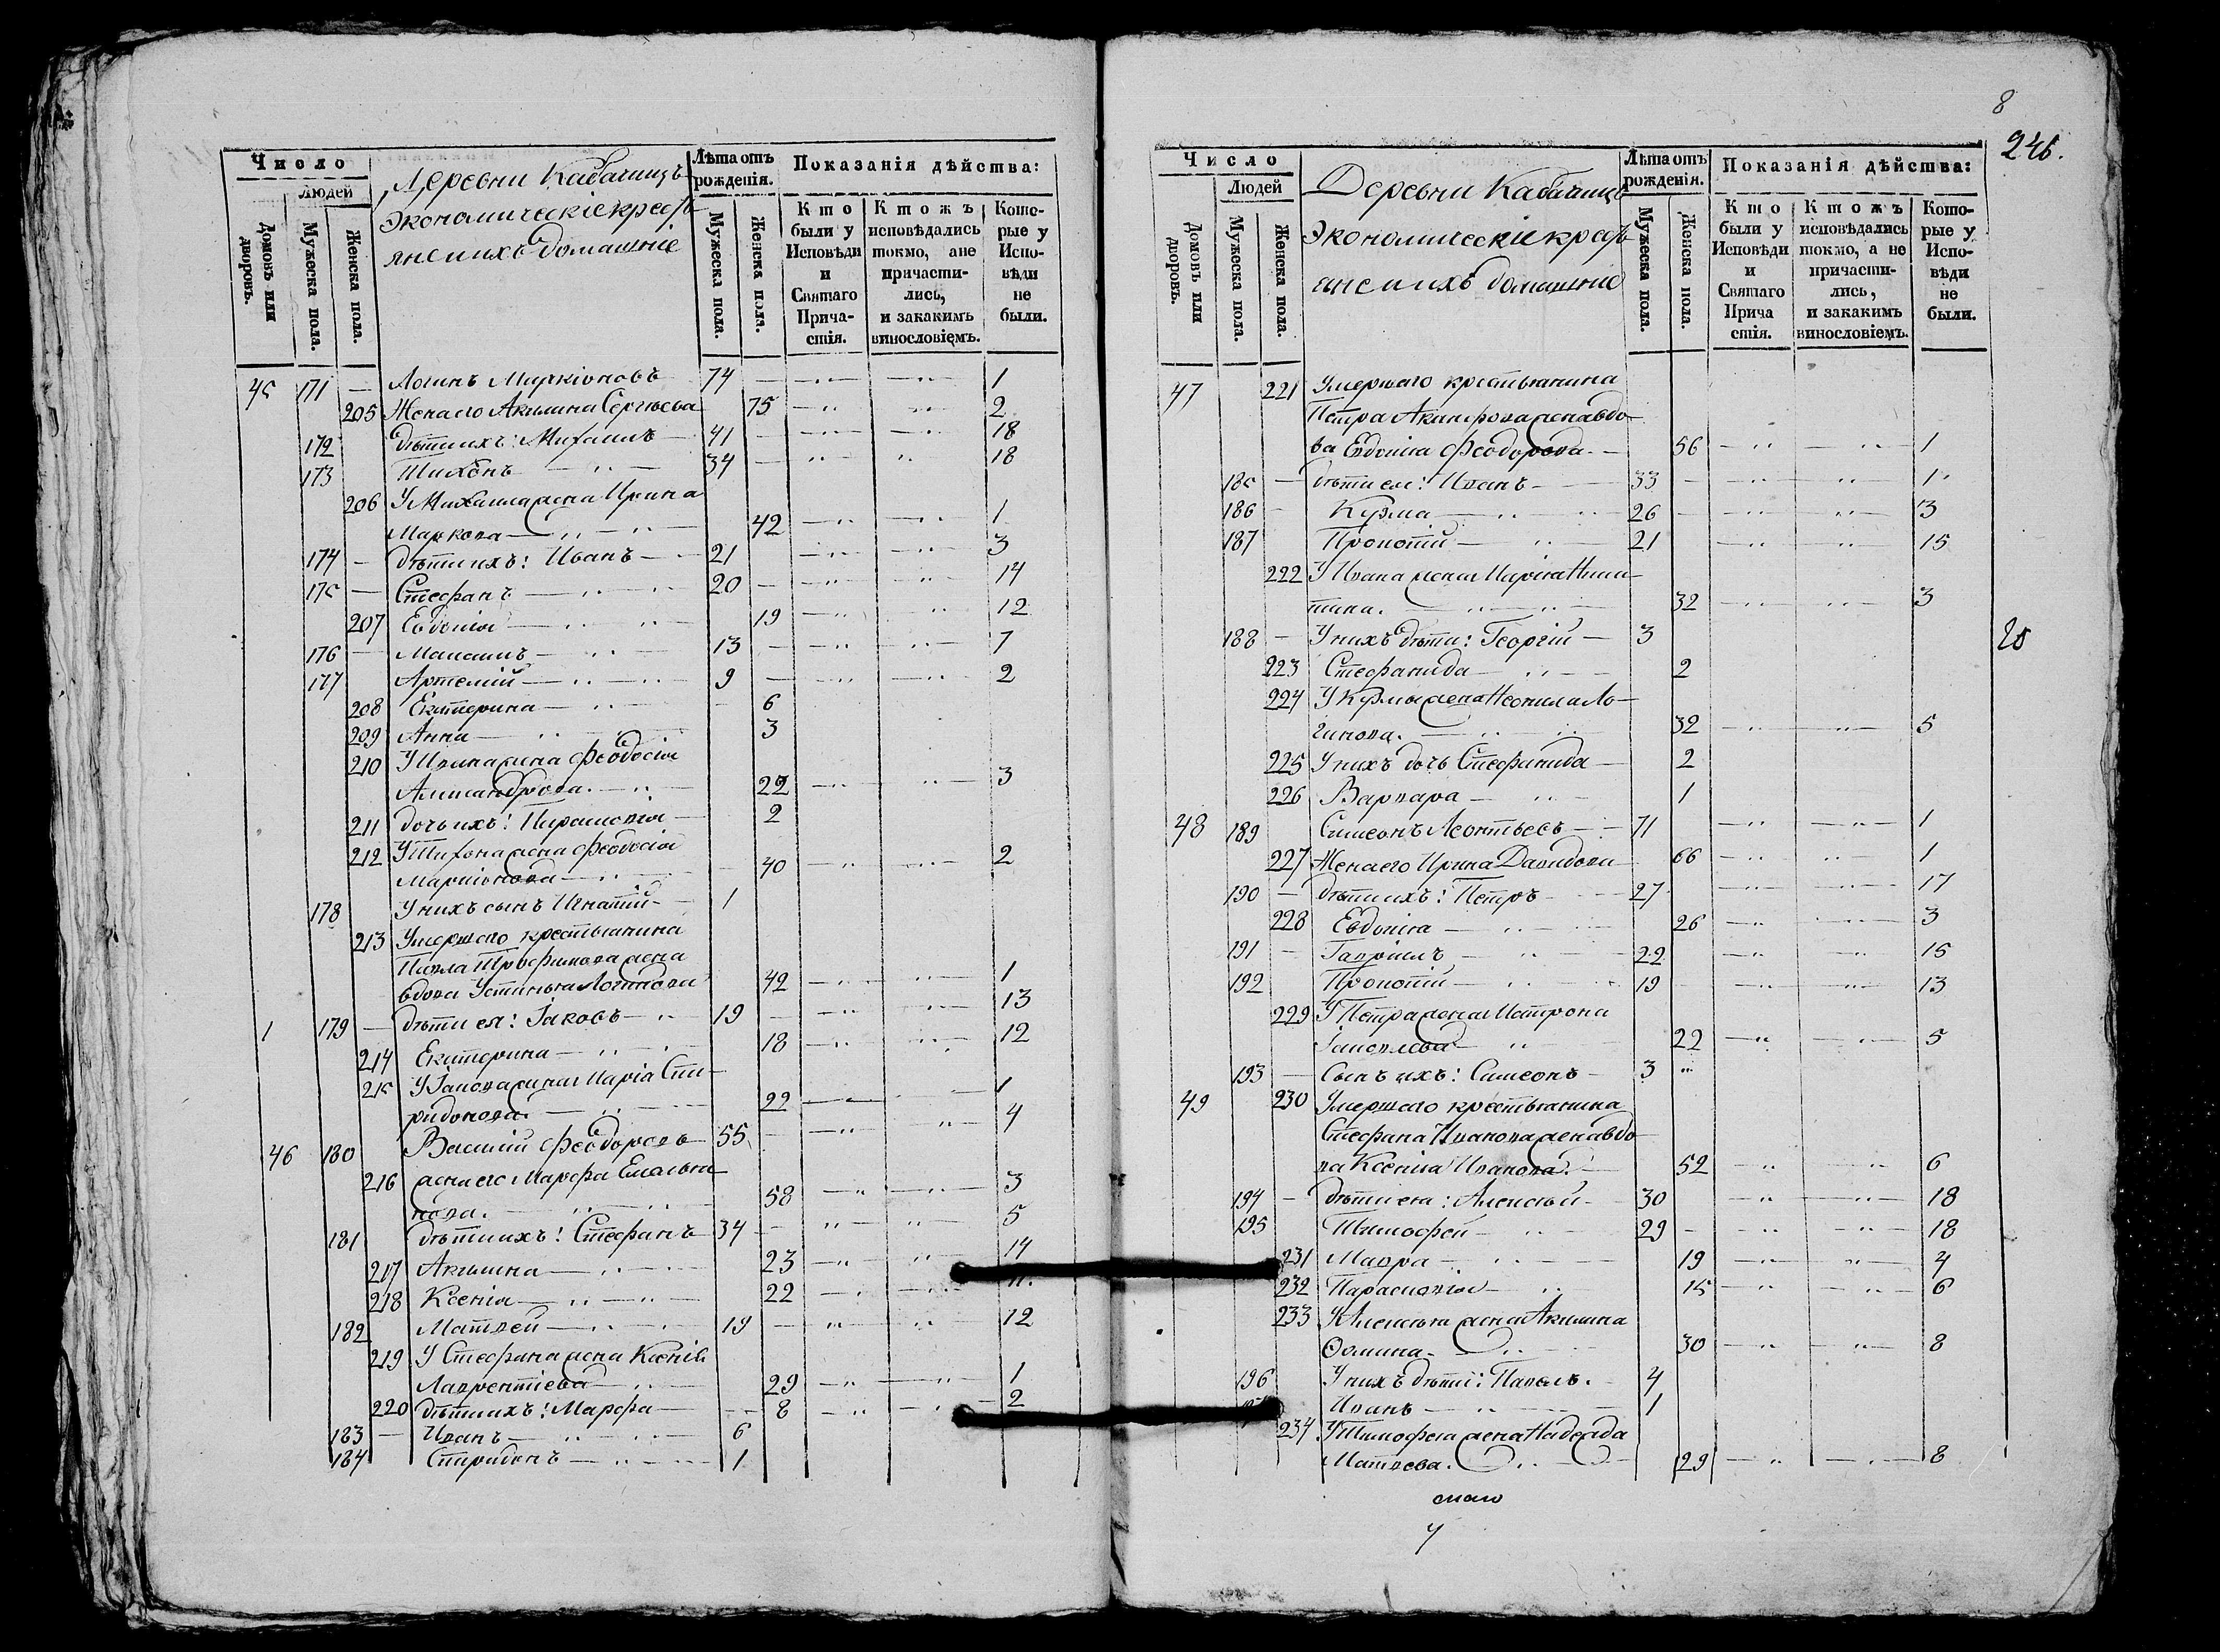 Число
Людей
Домовъ или дворовъ.
Мужеска пола.
Женска пола.
Деревни Кабачищъ
Экономическіе кресть
яне и ихъ домашніе
Лѣта отъ рожденія.
Мужеска пола.
Женска пола.
Показанія дѣйства:
Кто были у Исповѣди и Святаго Причастія.
Ктожъ исповѣдались токмо, а не причастились, и за какимъ винословіемъ.
Которые у Исповѣди не были.
45 171 — Логинъ Маркіоновъ 74 — 1
205 Жена его Акилина Сергѣева 75 — 2
172 дѣти ихъ: Михаилъ — 41 — 18
173 Тихонъ — 34 — 18
206 У Михаила жена Ирина
Маркова — 42 — 1
174 — дѣти ихъ: Иванъ — 21 — 3
175 — Стефанъ — 20 — 14
207 Евдокіа — 19 — 12
176 — Максимъ — 13 — 7
177 Артемій — 9 — 2
208 Екатерина — 6
209 Анна — 3
210 У Ивана жена Феодосіа
Александрова. — 22 — 3
211 дочь ихъ: Параскевіа — 2
212 У Тихона жена Феодосіа
Маркіонова — 40 — 2
178 У нихъ сынъ Игнатій — 1
213 Умершаго крестьянина
Павла Трофимова жена
вдова Устинья Логинова 42 — 1
1 179 — дѣти ея: Іаковъ — 19 — 13
214 Екатерина — 18 — 12
215 У Іакова жена Маріа Спи-
ридонова. — 22 — 1
46 180 Василій Феодоровъ 55 — 4
216 жена его Марфа Емелья
нова. — 58 — 3
181 дѣти ихъ: Стефанъ 34 — 5
217 Акилина — 23 — 14
218 Ксеніа — 22 — 11.
182 Матвей — 19 — 12
219 У Стефана жена Ксеніа
Лаврентіева — 29 — 1
220 дѣти ихъ: Марфа — 8 — 2
183 — Иванъ — 6
184 Спиридонъ — 1
8
246.
Число
Людей
Домовъ или дворовъ.
Мужеска пола.
Женска пола.
Деревни Кабачищъ
Экономическіе кресть
яне и ихъ домашніе
Лѣта отъ рожденія.
Мужеска пола.
Женска пола.
Показанія дѣйства:
Кто были у Исповѣди и Святаго Прича стія.
Ктожъ исповѣдались токмо, а не причастились, и за какимъ винословіемъ.
Которые у Исповѣди не были.
47 221 Умершаго крестьянина
Петра Акинфова жена вдо
ва Евдокіа Феодорова. — 56 — 1
185 — дѣти ея: Иванъ — 33 — 1
186 — Кузма — 26 — 3
187 Прокопій — 21 — 15
222 У Ивана жена Маріа Ники-
тина. — 32 — 3
188 — У нихъ дѣти: Георгій — 3
223 Стефанида — 2
224 У Кузмы жена Неонила Ло-
гинова. — 32 — 5
225 У нихъ дочь Стефанида — 2
226 Варвара — 1
48 189 Симеонъ Леонтьевъ — 71 — 1
227 Жена его Ирина Давидова 66 — 1
190 — дѣти ихъ: Петръ — 27 — 17
228 Евдокіа — 26 — 3
191 — Гавріилъ — 22 — 15
192 Прокопій — 19 — 13
229 У Петра жена Матрона
Іаковлева — 22 — 5
193 — Сынъ ихъ: Симеонъ — 3
49 230 Умершаго крестьянина
Стефана Иванова жена вдо
ва Ксеніа Иванова. — 52 — 6
194 — дѣти ея: Алексѣй — 30 — 18
195 Тимофей — 29 — 18
231 Мавра — 19 — 4
232 Параскевіа — 15 — 6
233 У Алексѣя жена Акилина
Фомина. — 30 — 8
196 У нихъ дѣти: Павелъ. 4
Иванъ — 1
234 У Тимофея жена Надежда
Матвеева. — 29 — 8
20